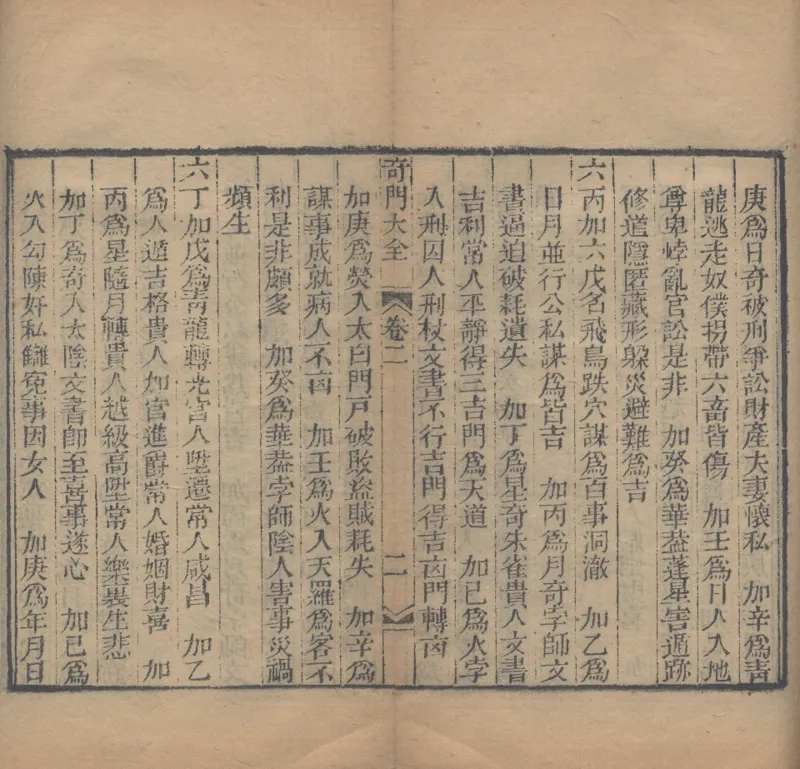 庚爲日奇被刑爭訟財產夫妻懷私　加辛爲青
龍逃走奴僕拐帶六畜皆傷　加壬爲日入入地
尊卑悖亂官訟是非　加癸爲華葢蓬星害遁跡
修道隱匿藏形躱災避難爲吉
六丙加六戊名飛鳥跌穴謀爲百事洞澈　加乙爲
日月並行公私謀爲皆吉　加丙爲月奇孛師文
書逼迫破耗遺失　加丁爲星奇朱雀貴人文書
吉利常人平靜得三吉門爲天遁　加已爲火孛
入刑囚人刑杖文書不行吉門得吉凶門轉凶
奇門大全　卷二　二
加庚爲熒入太白門戸破敗盜賊耗失　加辛爲
謀事成就病人不凶　加壬爲火入天羅爲客不
利是非頗多　加癸爲華葢孛師陰人害事災禍
頻生
六丁加戊爲靑龍轉光官人陞遷常人咸昌　加乙
爲人遁吉格貴人加官進爵常人婚姻財喜　加
丙爲星隨月轉貴人越級高陞常人樂裏生悲
加丁爲奇入太陰文書師至喜事遂心　加已爲
火入勾陳奸私讎寃事因女人　加庚爲年月日